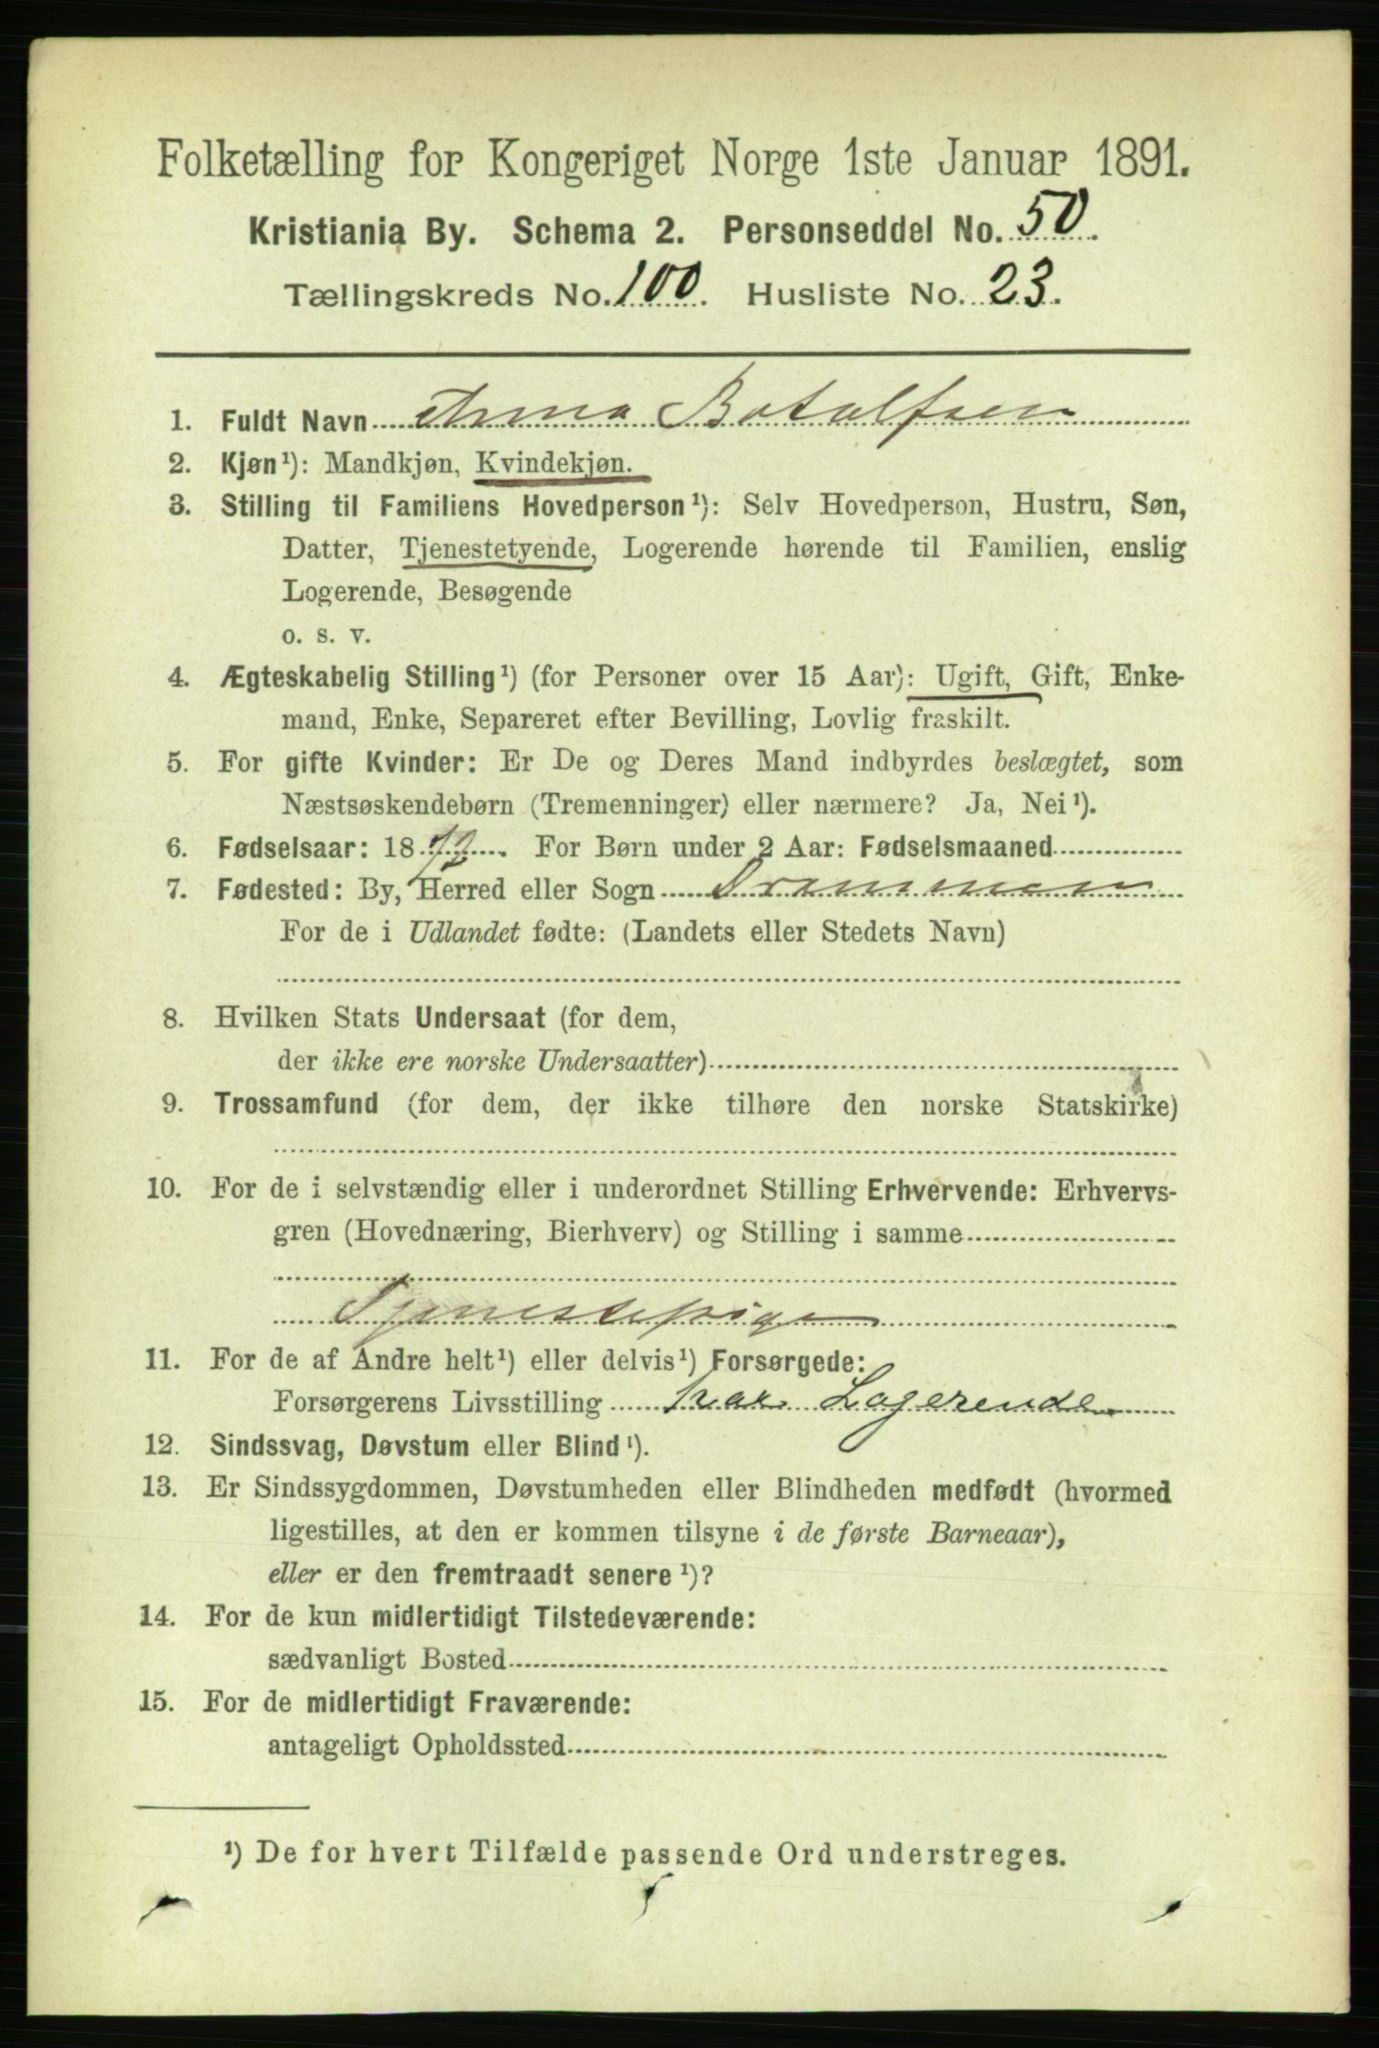 Folketælling for Kongeriget Norge 1ste Januar 1891.
Kristiania By. Schema 2. Personseddel No. 50.
Tællingskreds No. 100. Husliste No. 23.
1. Fuldt Navn Anna Botolfsen
2. Kjøn¹): Mandkjøn, Kvindekjøn.
3. Stilling til Familiens Hovedperson¹): Selv Hovedperson, Hustru, Søn,
Datter, Tjenestetyende, Logerende hørende til Familien, enslig
Logerende, Besøgende
o. s. v.
4. Ægteskabelig Stilling¹) (for Personer over 15 Aar): Ugift, Gift, Enke-
mand, Enke, Separeret efter Bevilling, Lovlig fraskilt.
5. For gifte Kvinder: Er De og Deres Mand indbyrdes beslægtet, som
Næstsøskendebørn (Tremenninger) eller nærmere? Ja, Nei¹).
6. Fødselsaar: 1872. For Børn under 2 Aar: Fødselsmaaned
7. Fødested: By, Herred eller Sogn Drammen
For de i Udlandet fødte: (Landets eller Stedets Navn)
8. Hvilken Stats Undersaat (for dem,
der ikke ere norske Undersaatter)
9. Trossamfund (for dem, der ikke tilhøre den norske Statskirke)
10. For de i selvstændig eller i underordnet Stilling Erhvervende: Erhvervs-
gren (Hovednæring, Bierhverv) og Stilling i samme
Tjenestepige
11. For de af Andre helt¹) eller delvis¹) Forsørgede:
Forsørgerens Livsstilling har Logerende
12. Sindssvag, Døvstum eller Blind¹).
13. Er Sindssygdommen, Døvstumheden eller Blindheden medfødt (hvormed
ligestilles, at den er kommen tilsyne i de første Barneaar),
eller er den fremtraadt senere¹)?
14. For de kun midlertidigt Tilstedeværende:
sædvanligt Bosted
15. For de midlertidigt Fraværende:
antageligt Opholdssted
¹) De for hvert Tilfælde passende Ord understreges.